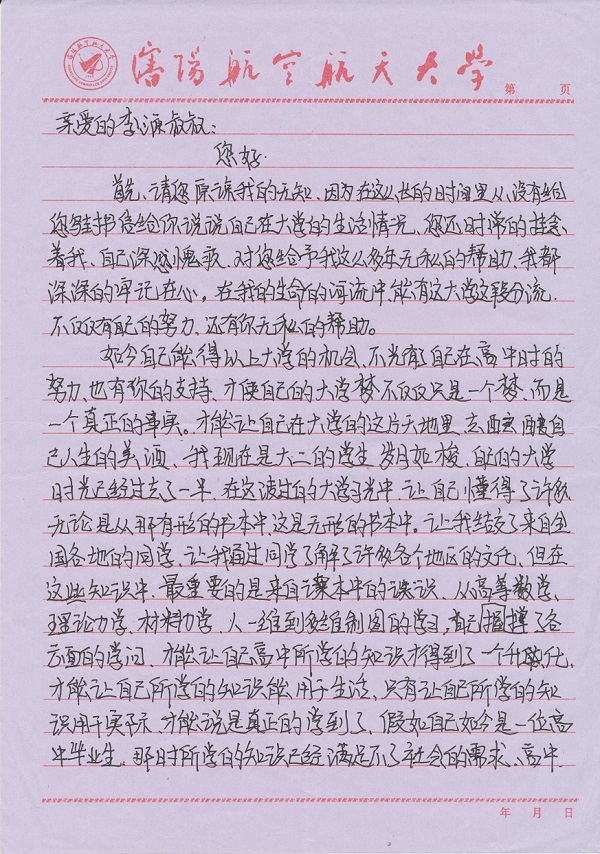 瀋陽航空航天大學
第 页
亲爱的李源叔叔：
您好.
首先、请您原谅我的无知、因为在这么长的时间里从没有给
您写书信给你说说自己在大学的生活情况、您还时常的挂念
着我、自己深感愧歉、对您给予我这么多年无私的帮助、我都
深深的牢记在心。在我的生命的河流中、能有这大学这段分流
不仅仅有自己的努力、还有你无私的帮助。
如今自己能得以上大学的机会、不光有自己在高中时的
努力、也有你的支持、才使自己的大学梦不仅仅只是一个梦、而是
一个真正的事实。才能让自己在大学的这片天地里、去酝酿自
己人生的美酒、我现在是大二的学生、岁月如梭、自的大学
时光已经过去了一半、在这渡过的大学时光中、让自己懂得了许多
无论是从那有形的书本中、还是无形的书本中。让我结交了来自全
国各地的同学、让我通过同学了解了许多各个地区的文化、但在
这些知识中、最重要的是来自课本中的知识、从高等数学、
理论力学、材料力学、从一维到多维制图的学习、自己掌握了各
方面的学问、才能让自己高中所学的知识才得到了一个升华、
才能让自己所学的知识能用于生活、只有让自己所学的知
识用于实际、才能说是真正的学到了、假如自己如今是一位高
中毕业生、那时所学的知识已经满足不了社会的需求、高中
年 月 日